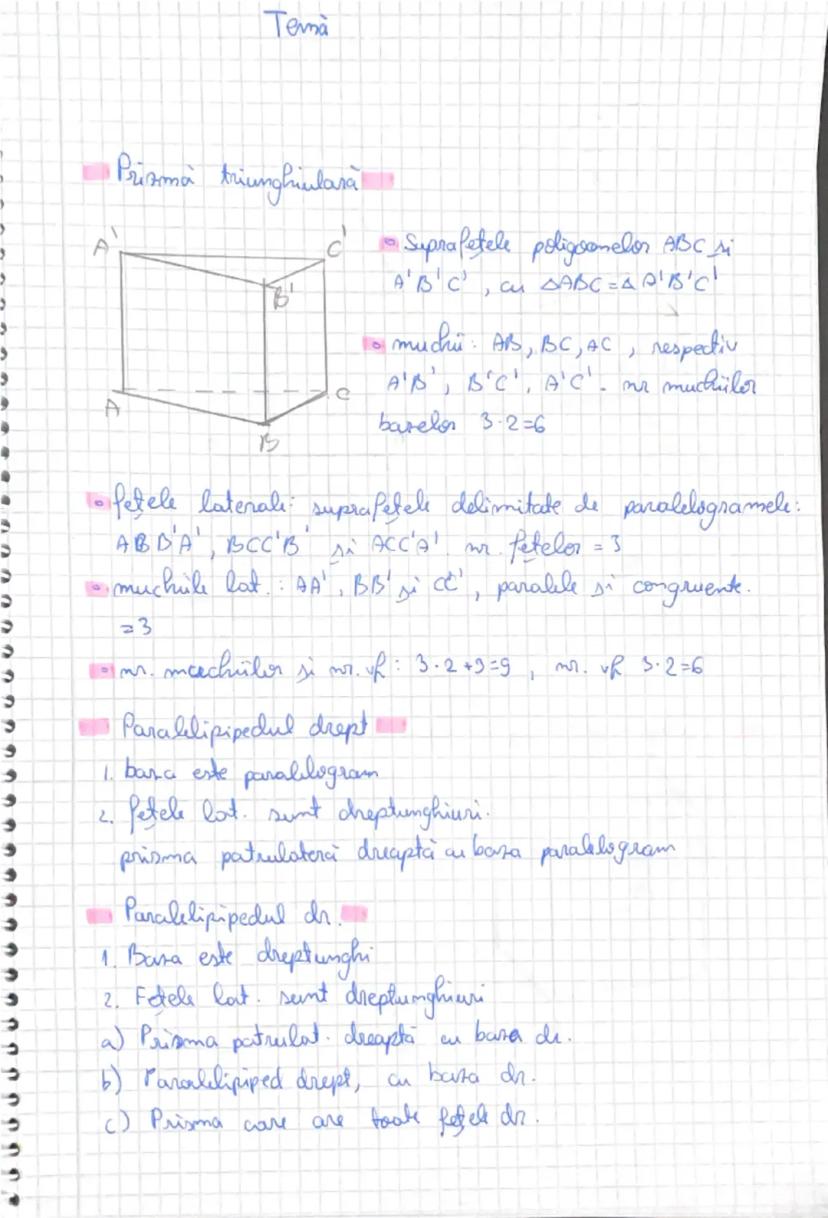 Temă
Prismă triunghiulară
A' C' B' A C B
Suprafețele poligoanelor ABC și
A'B'C', cu ΔABC=Δ A'B'C'
muchii: AB, BC, AC, respectiv
A'B', B'C', A'C'. nr muchiilor
bazelor 3·2=6
fețele laterale: suprafețele delimitate de paralelogramele:
ABB'A', BCC'B' și ACC'A' nr. fețelor = 3
muchiile lat.: AA', BB' și CC', paralele și congruente.
=3
nr. muchiilor și nr. vf: 3·2+3=9, nr. vf 3·2=6
Paralelipipedul drept
1. baza este paralelogram
2. fețele lat. sunt dreptunghiuri.
prisma patrulateră dreaptă cu baza paralelogram
Paralelipipedul dr.
1. Baza este dreptunghi
2. Fețele lat. sunt dreptunghiuri
a) Prisma patrulat. dreaptă cu baza dr.
b) Paralelipiped drept, cu baza dr.
c) Prisma care are toate fețele dr.